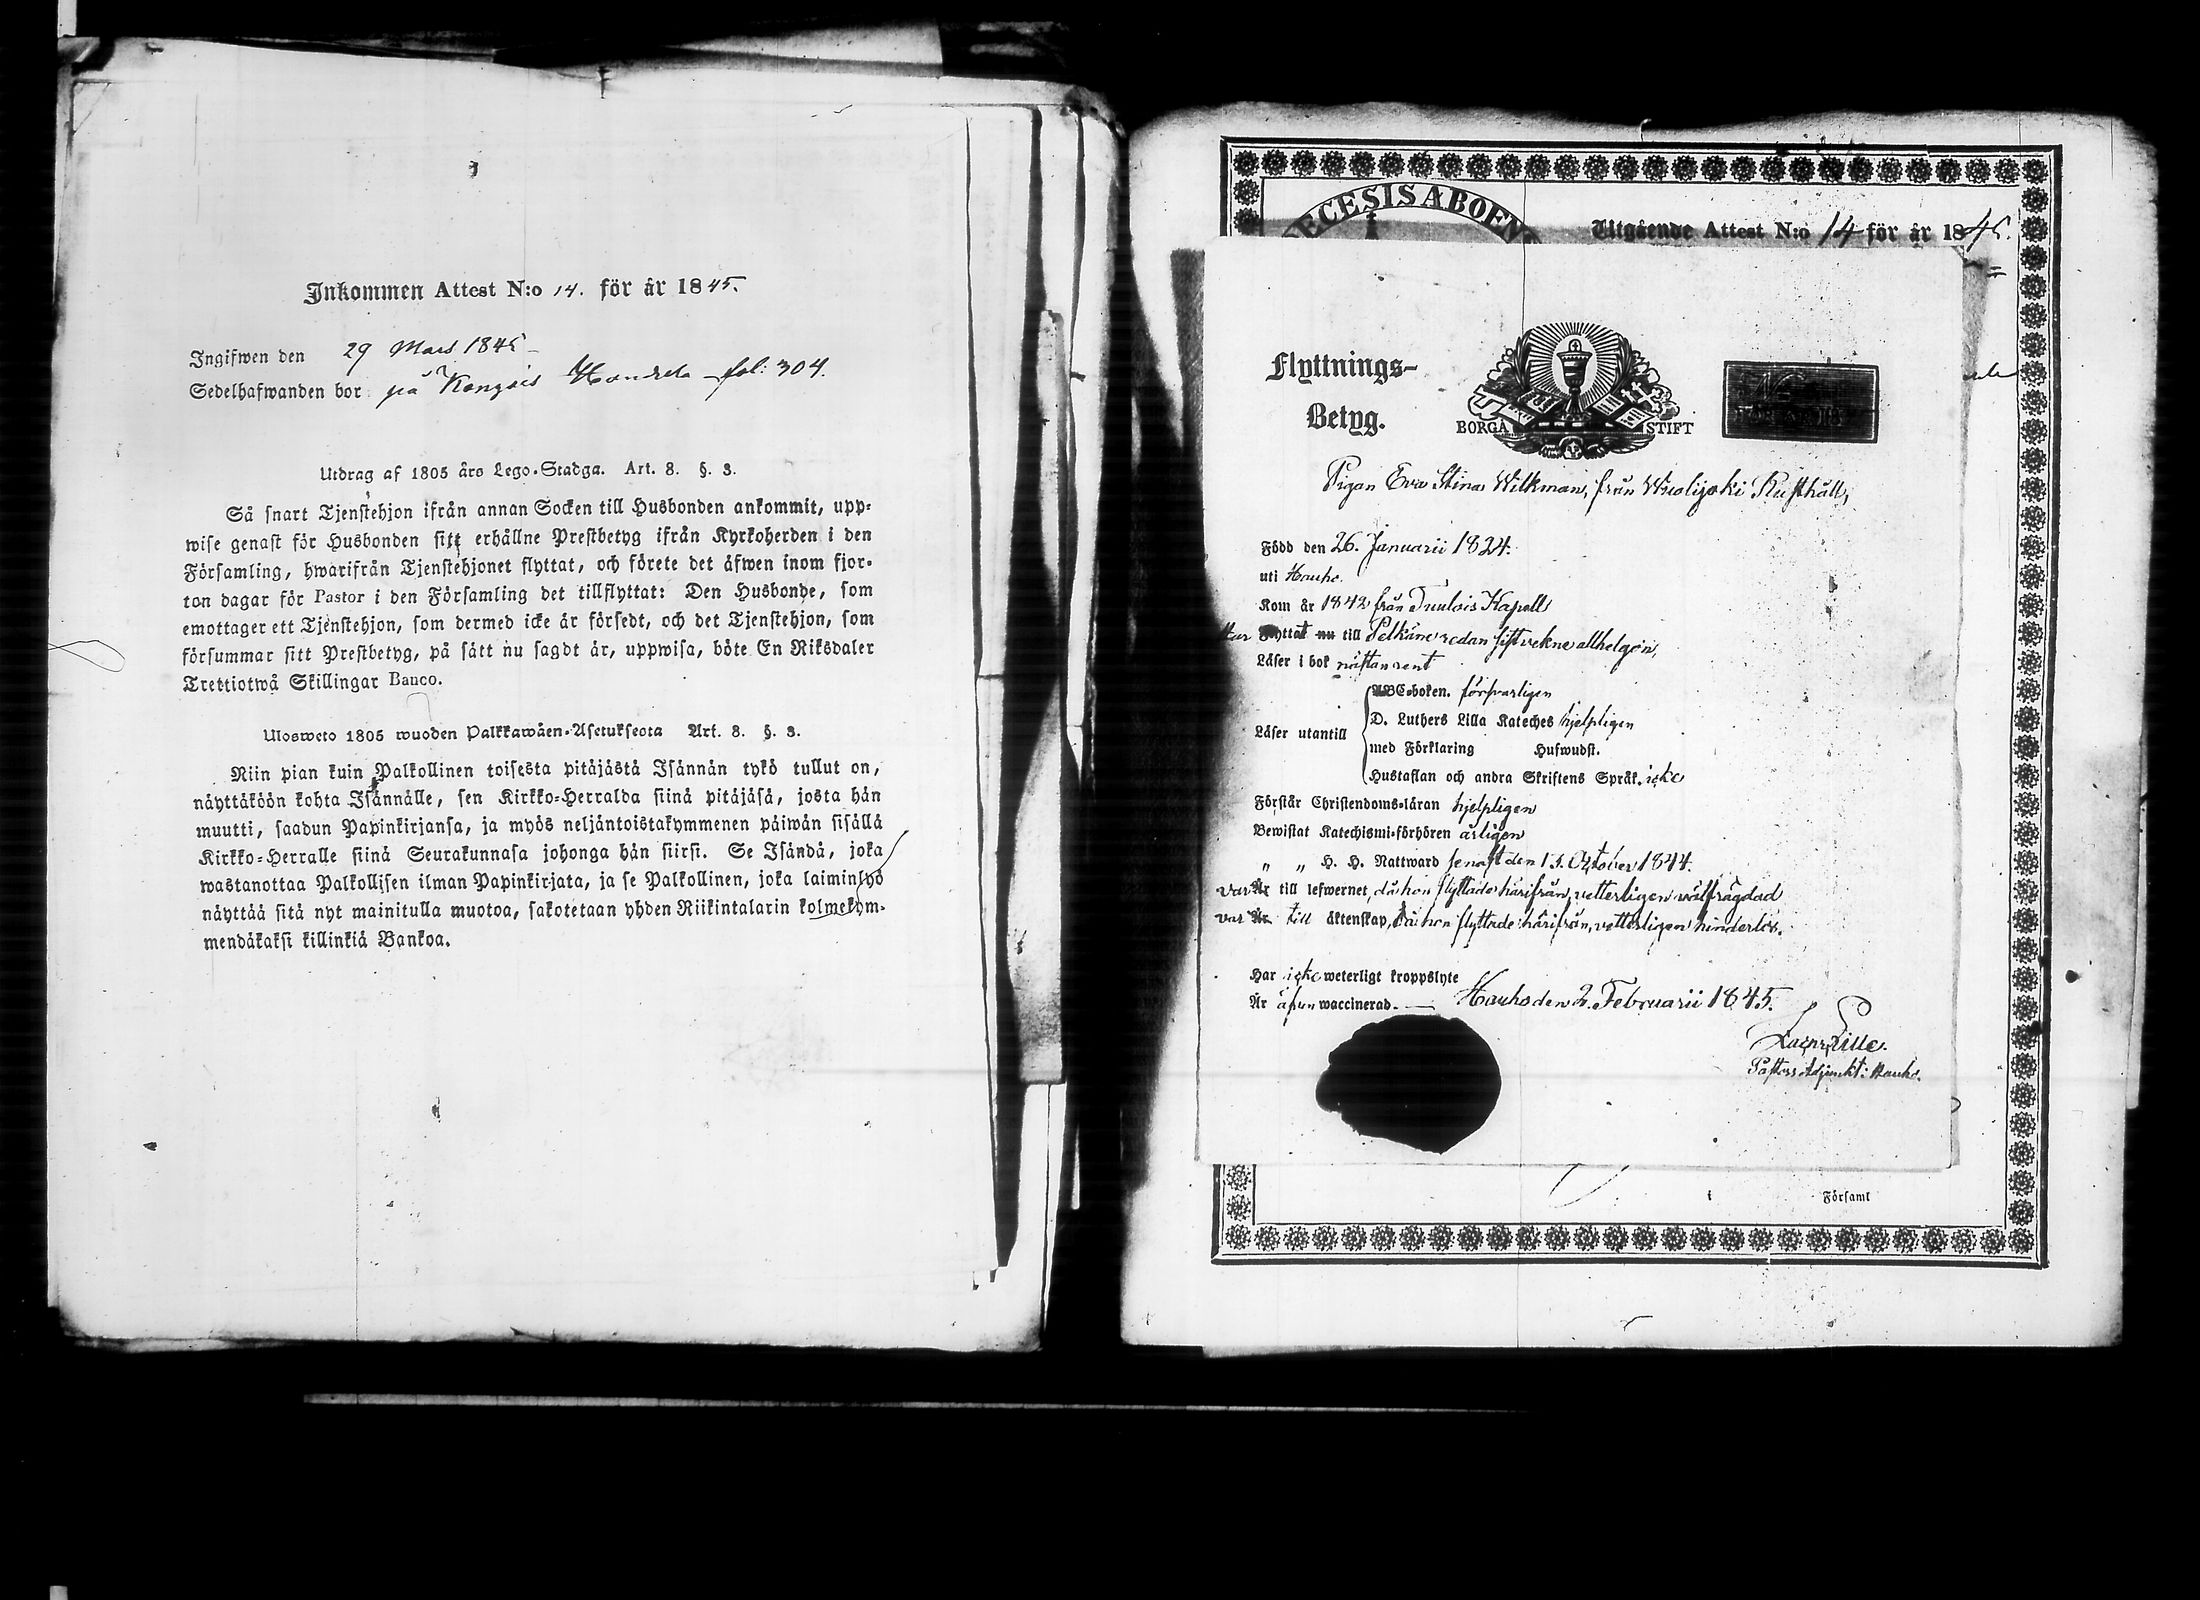 Inkommen Attest N:o 14. för år 1845.
Ingifwen den 29 Mars 1845
Sedelhafwanden bor på fol: 304.
Utdrag af 1805 års Lego-Stadga. Art. 8. §. 3.
Så snart Tjenstehjon ifrån annan Socken till Husbonden ankommit, upp-
wise genast för Husbonden sitt erhållne Prestbetyg ifrån Kyrkoherden i den
Församling, hwarifrån Tjenstehjonet flyttat, och förete det äfwen inom fjor-
ton dagar för Pastor i den Församling det tillflyttat: Den Husbonde, som
emottager ett Tjenstehjon, som dermed icke är försedt, och det Tjenstehjon, som
försummar sitt Prestbetyg, på sätt nu sagdt är, uppwisa, böte En Riksdaler
Trettiotwå Skillingar Banco.
Ulosweto 1805 wuoden Palkkawäen-Asetuksesta Art. 8. §. 3.
Niin pian kuin Palkollinen toisesta pitäjästä Isännän tykö tullut on,
näyttäköön kohta Isännälle, sen Kirkko-Herralda siinä pitäjäsä, josta hän
muutti, saadun Papinkirjansa, ja myös neljäntoistakymmenen päiwän sisällä
Kirkko-Herralle siinä Seurakunnasa johonga hän siirsi. Se Isändä, joka
wastanottaa Palkollisen ilman Papinkirjata, ja se Palkollinen, joka laiminlyö
näyttää sitä nyt mainitulla muotoa, sakotetaan yhden Riikintalarin kolmekym-
mendäkaksi killinkiä Bankoa.
ECESIS ABOEN
Utgående Attest N:o 14 för år 1845.
Flyttnings-
Betyg.
BORGÅ STIFT
Pigan Eva Stina Wilkman, från Wuolijoki Rusthåll,
Född den 26. Januarii 1824.
uti Hauho.
Kom år 1842 från Tuulois Kapell
Har Flyttat nu till Pelkäne redan sistvekne allhelgon,
Läser i bok nästan rent
Läser utantill
ABC-boken. försvarligen
D. Luthers Lilla Kateches hjelpligen
med Förklaring Hufwudst.
Hustaflan och andra Skriftens Språk. icke
Förstår Christendoms-läran hjelpligen
Bewistat Katechismi-förhören årligen
" " H. H. Nattward senast den 13. October 1844.
var Är till lefwernet, då hon flyttade härifrån, vetterligen välfrägdad
var Är till äktenskap, då hon flyttade härifrån, vetterligen hinderlös.
Har icke weterligt kroppslyte
Är äfven waccinerad. Hauho den 2. Februarii 1845.
Pastors Adjunkt i Hauho.
i Församl